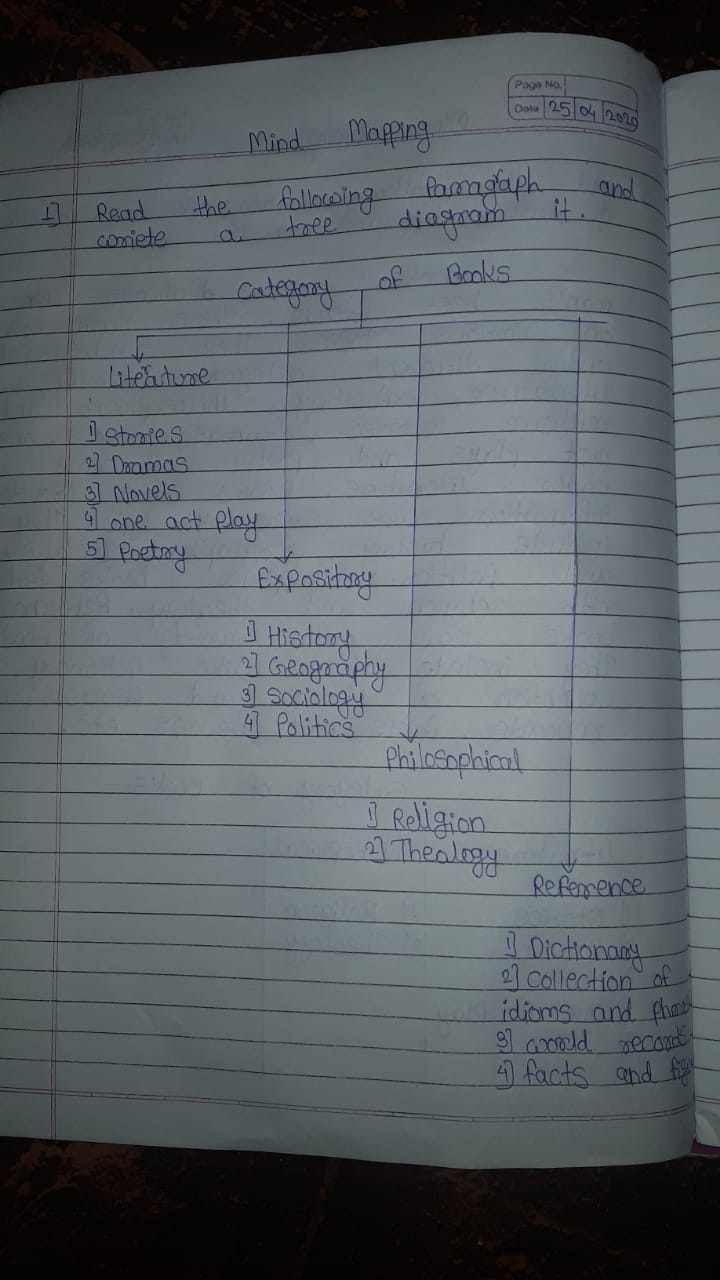 Page No.
Date 25 04 2020
Mind Mapping
1] Read the following Paragraph and
comiete a tree diagram it.
Category of Books
Literature
1] Stories
2] Dramas
3] Novels
4] one act Play
5] Poetry
Expository
1] History
2] Geography
3] Sociology
4] Politics
Philosophical
1] Religion
2] Thealogy
Reference
1] Dictionary
2] Collection of
idioms and
3] world record
4] facts and